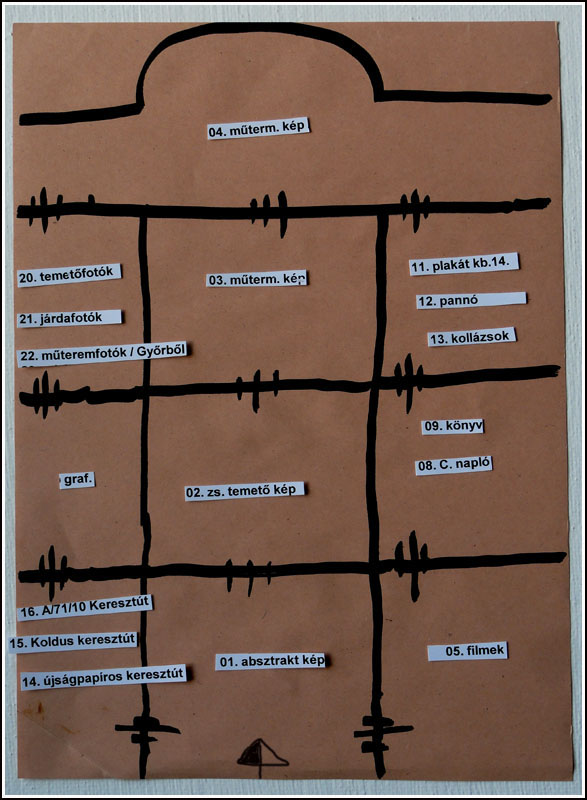 04. műterm. kép
20. temetőfotók
03. műterm. kép
11. plakát kb.14.
21. járdafotók
12. pannó
22. műteremfotók / Győrből
13. kollázsok
09. könyv
graf.
02. zs. temető kép
08. C. napló
16. A/71/10 Keresztút
15. Koldus keresztút
01. absztrakt kép
05. filmek
14. újságpapíros keresztút